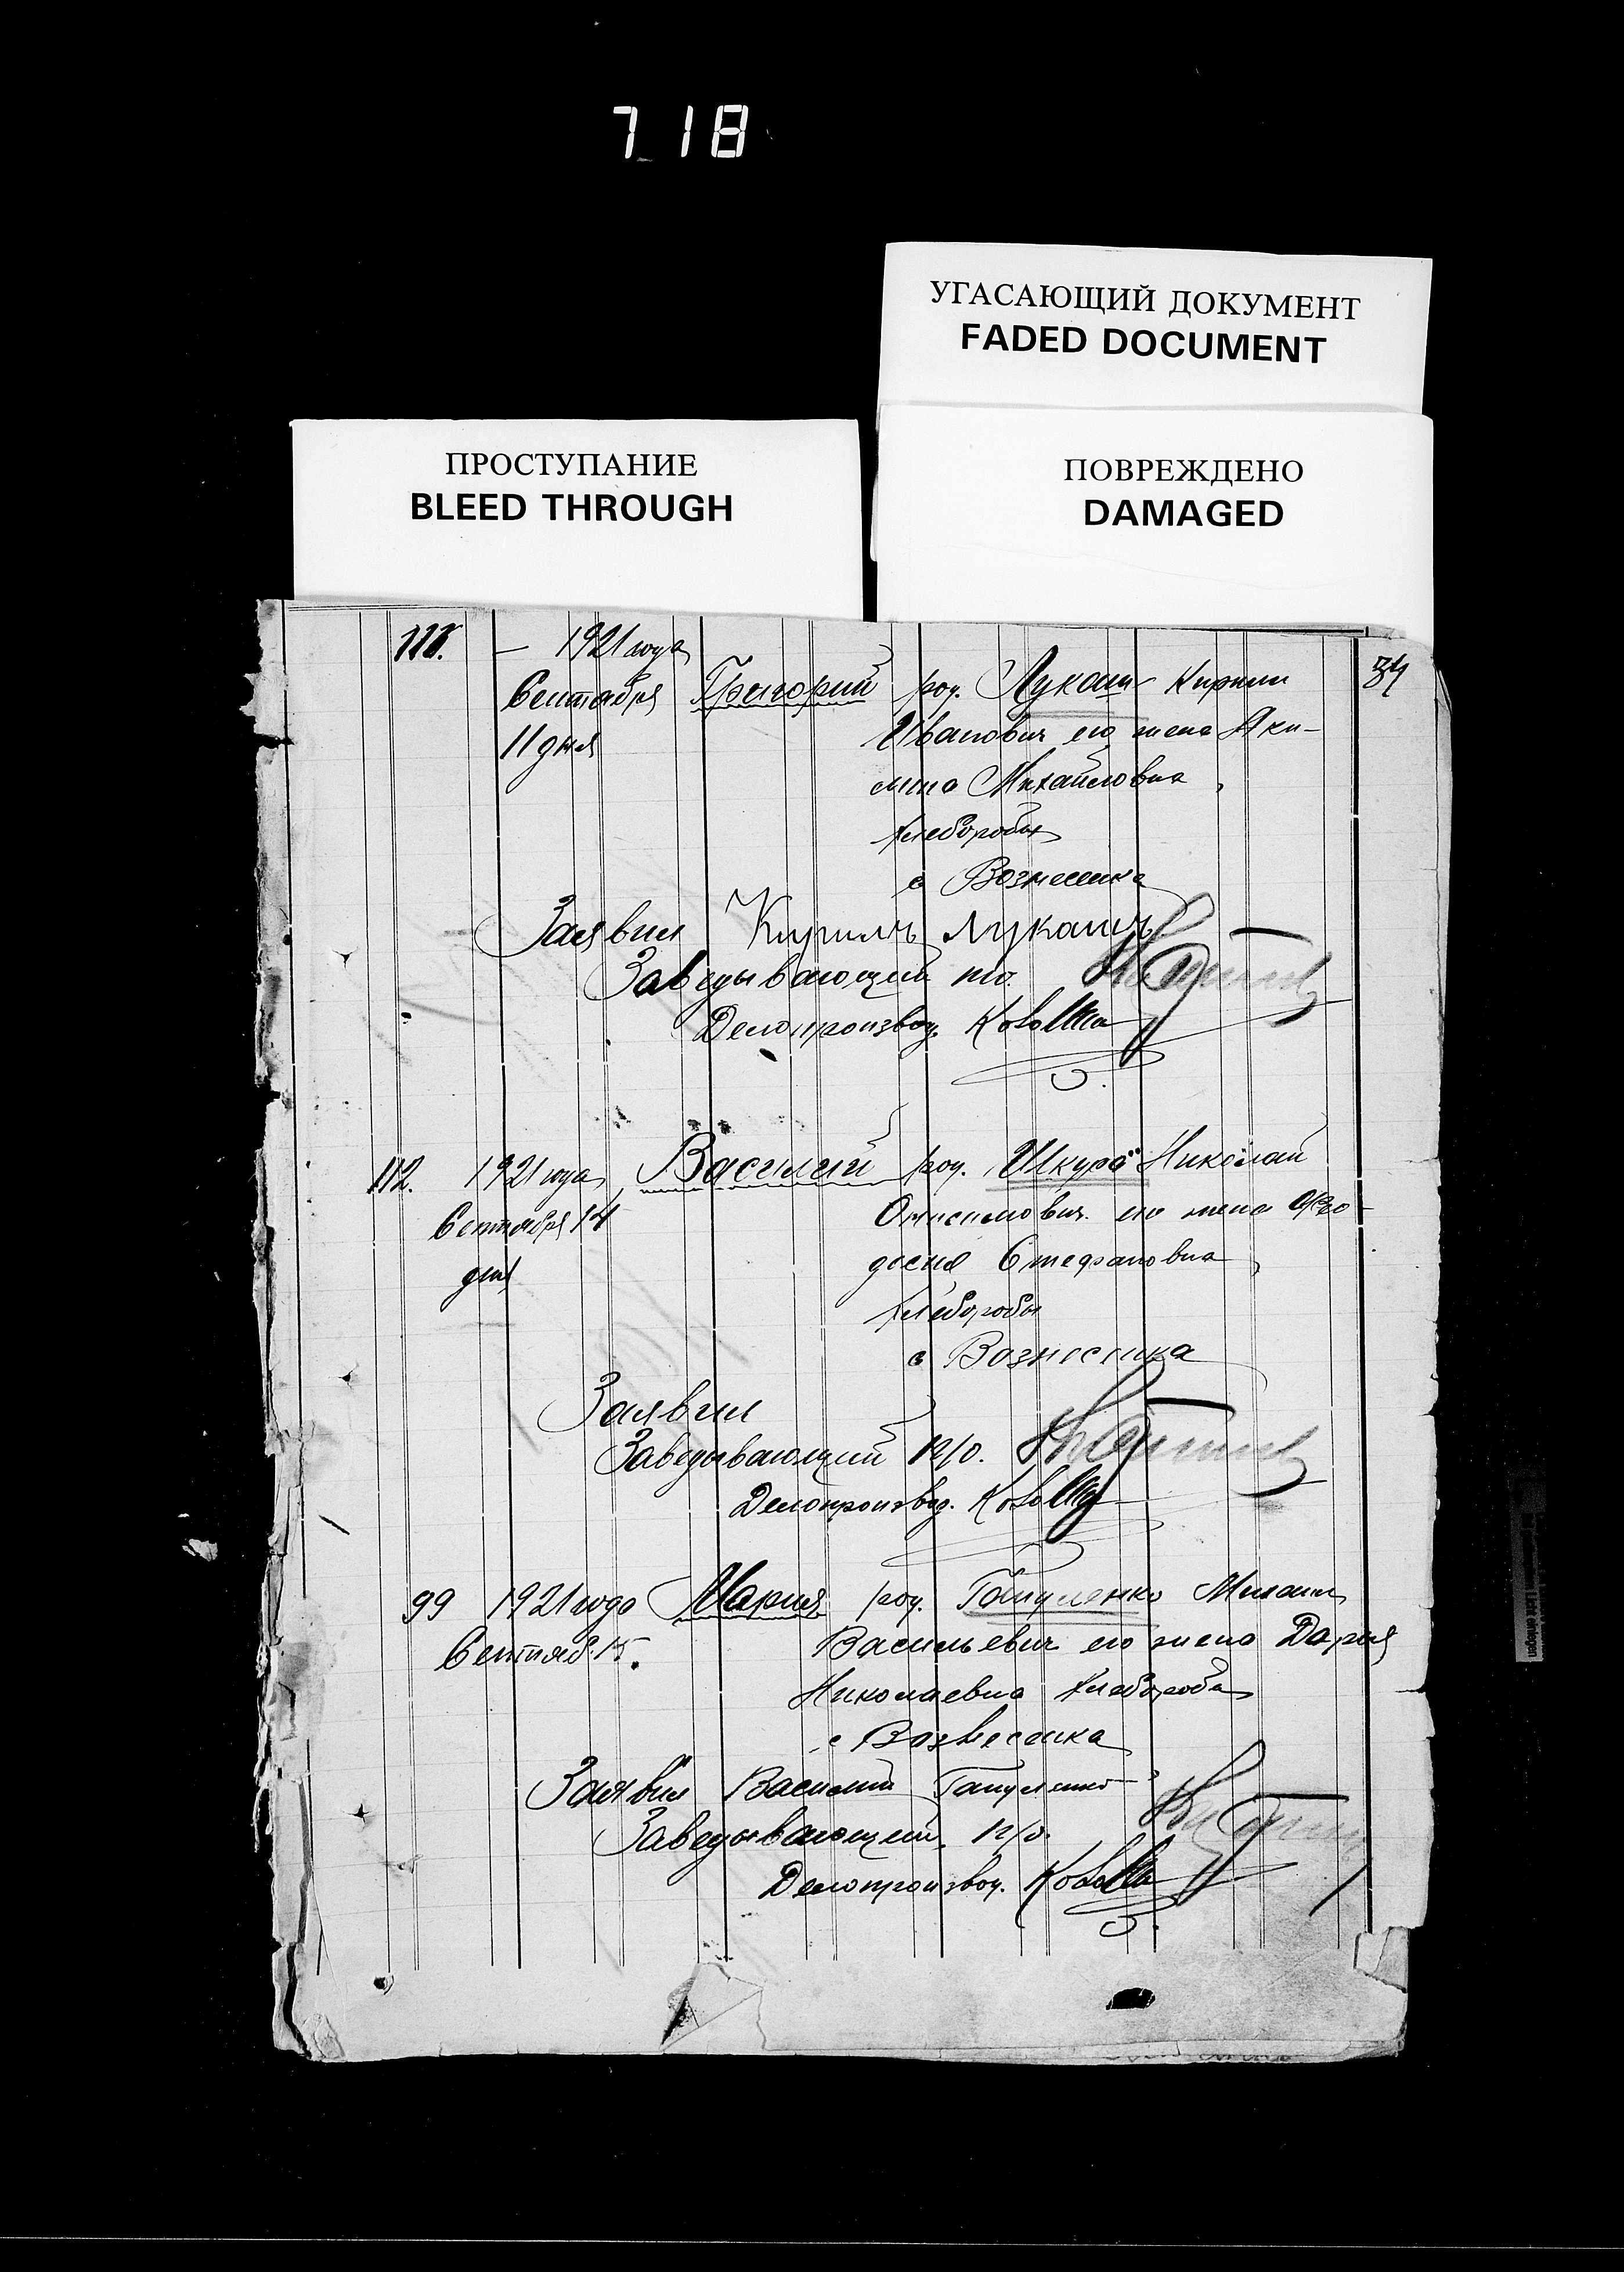 718
УГАСАЮЩИЙ ДОКУМЕНТ
FADED DOCUMENT
ПРОСТУПАНИЕ
BLEED THROUGH
ПОВРЕЖДЕНО
DAMAGED
— 1921 года
Сентября Григорий род. Лукаш Кирилл
11 дня Иванович его жена Аки-
мина Михайловна
хлеборобы
с Вознесенка
Заявил Кирилъ Лукашъ
Заведывающий по.
Делопроизвод.
112. 1921 года Василий род. Шкура Николай
Сентября 14 Онисимович. его жена Фео-
дня досия Стефановна
хлеборобы
с Вознесенка
Заявил
Заведывающий п/о.
Делопроизвод.
99 1921 года Мария род. Гапуленко Михаил
Сентяб. 15. Васильевич его жена Дария
Николаевна хлеборобы
с Вознесенка
Заявил Василий Гапуленко
Заведывающий п/о.
Делопроизвод.